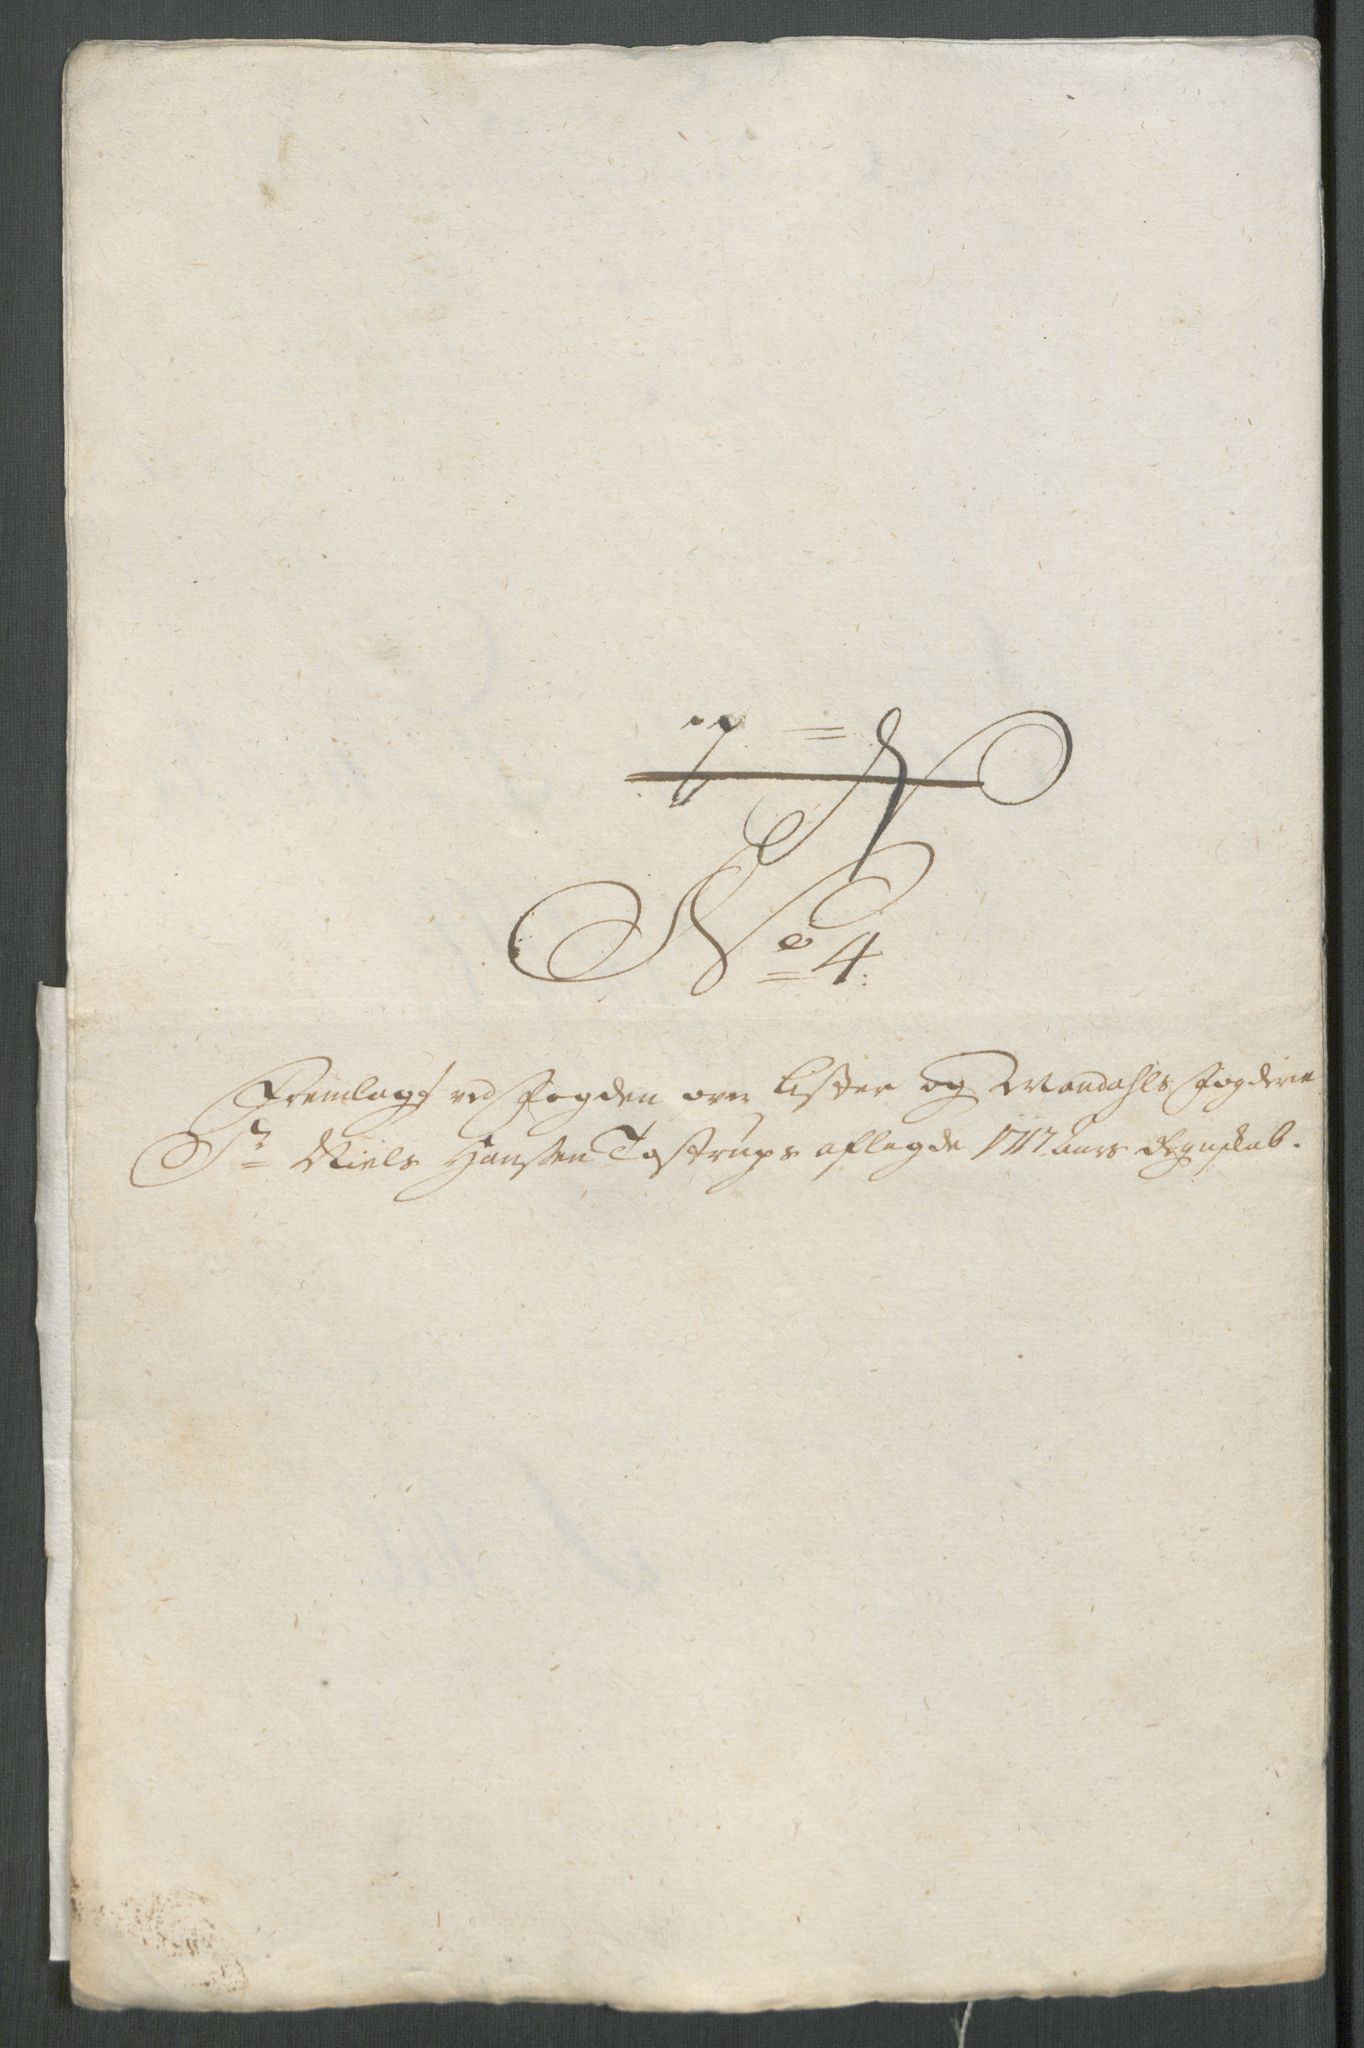 No 4:
Fremlagt ved Fogden over Lister og Mandahls Fogderie
Sr Niels Hansen Tostrups aflagde 1717 aars Regnskab.